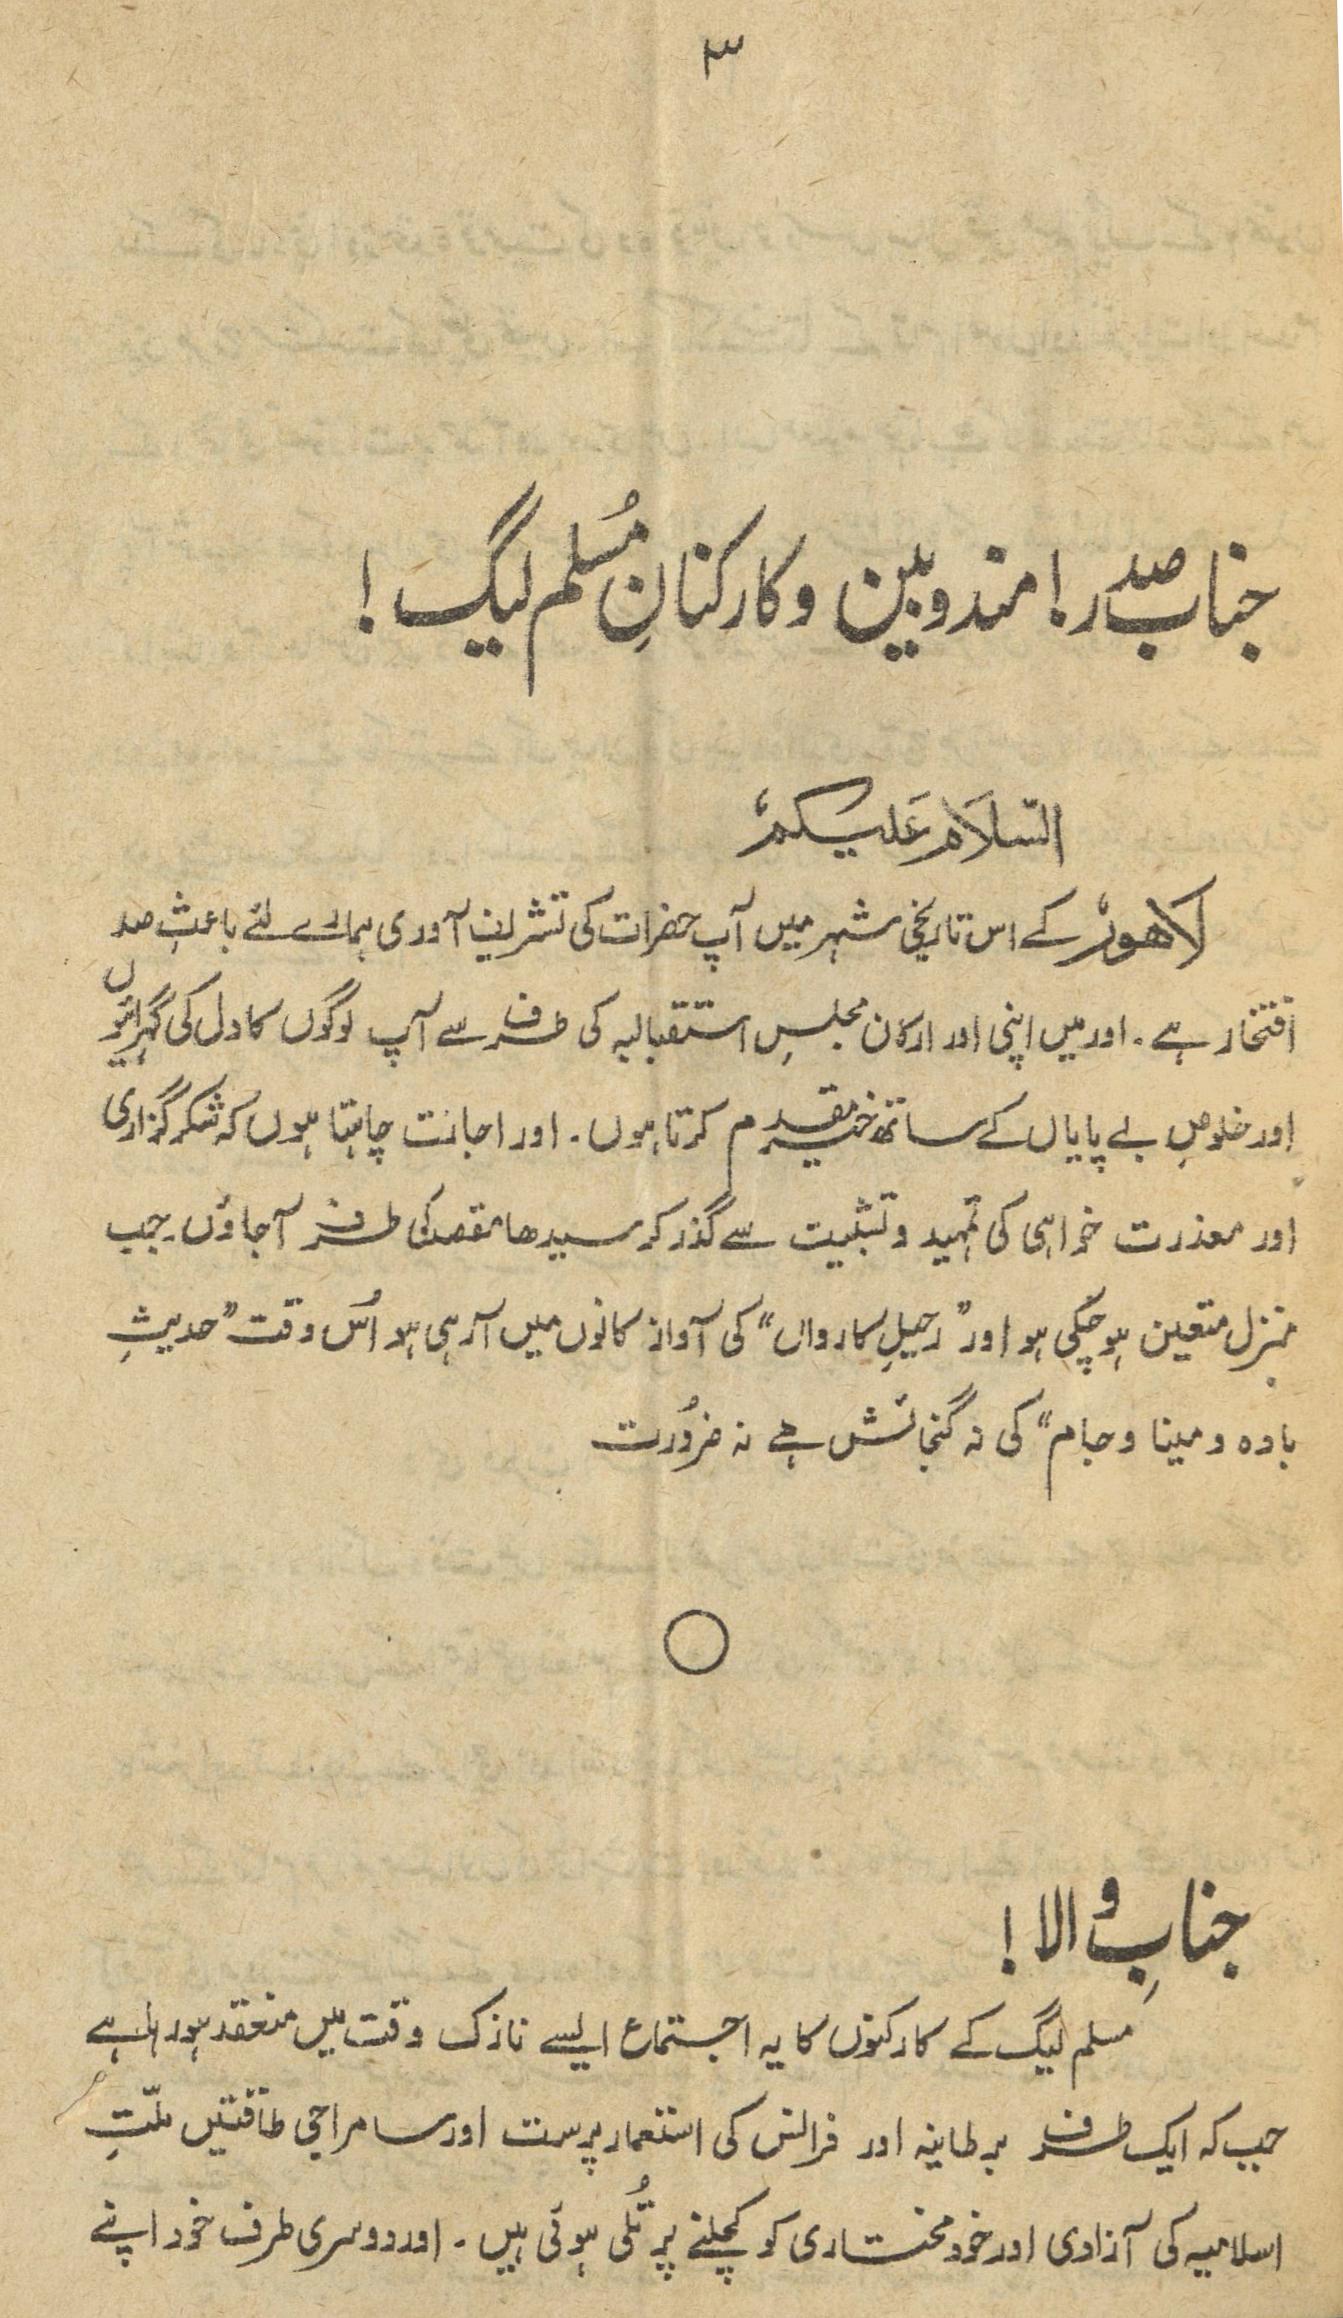 ۳
جناب صدر! مندوبین و کارکنانِ مُسلم لیگ!
السّلَام عَلیکمُ
لَاھورُ کے اس تاریخی شہر میں آپ حضرات کی تشریف آوری ہمارے لئے باعثِ صد
افتخار ہے۔ اور میں اپنی اور ارکان مجلسِ استقبالیہ کی طرف سے آپ لوگوں کا دل کی گہرائیوں
اور خلوصِ بے پایاں کے ساتھ خیر مقدم کرتا ہوں۔ اور اجازت چاہتا ہوں کہ شکر گزاری
اور معذرت خواہی کی تمہید و تشبیب سے گذر کر سیدھا مقصد کی طرف آجاؤں۔ جب
منزل متعین ہو چکی ہو اور ”رحیلِ کارواں“ کی آواز کانوں میں آرہی ہو اُس وقت ”حدیثِ
بادہ و مینا و جام“ کی نہ گنجائش ہے نہ ضرُورت
جنابِ والا!
مسلم لیگ کے کارکنوں کا یہ اجتماع ایسے نازک وقت میں منعقد ہو رہا ہے
جب کہ ایک طرف برطانیہ اور فرانس کی استعمار پرست اور سامراجی طاقتیں ملّتِ
اسلامیہ کی آزادی اور خود مختاری کو کچلنے پر تُلی ہوئی ہیں۔ اور دوسری طرف خود اپنے